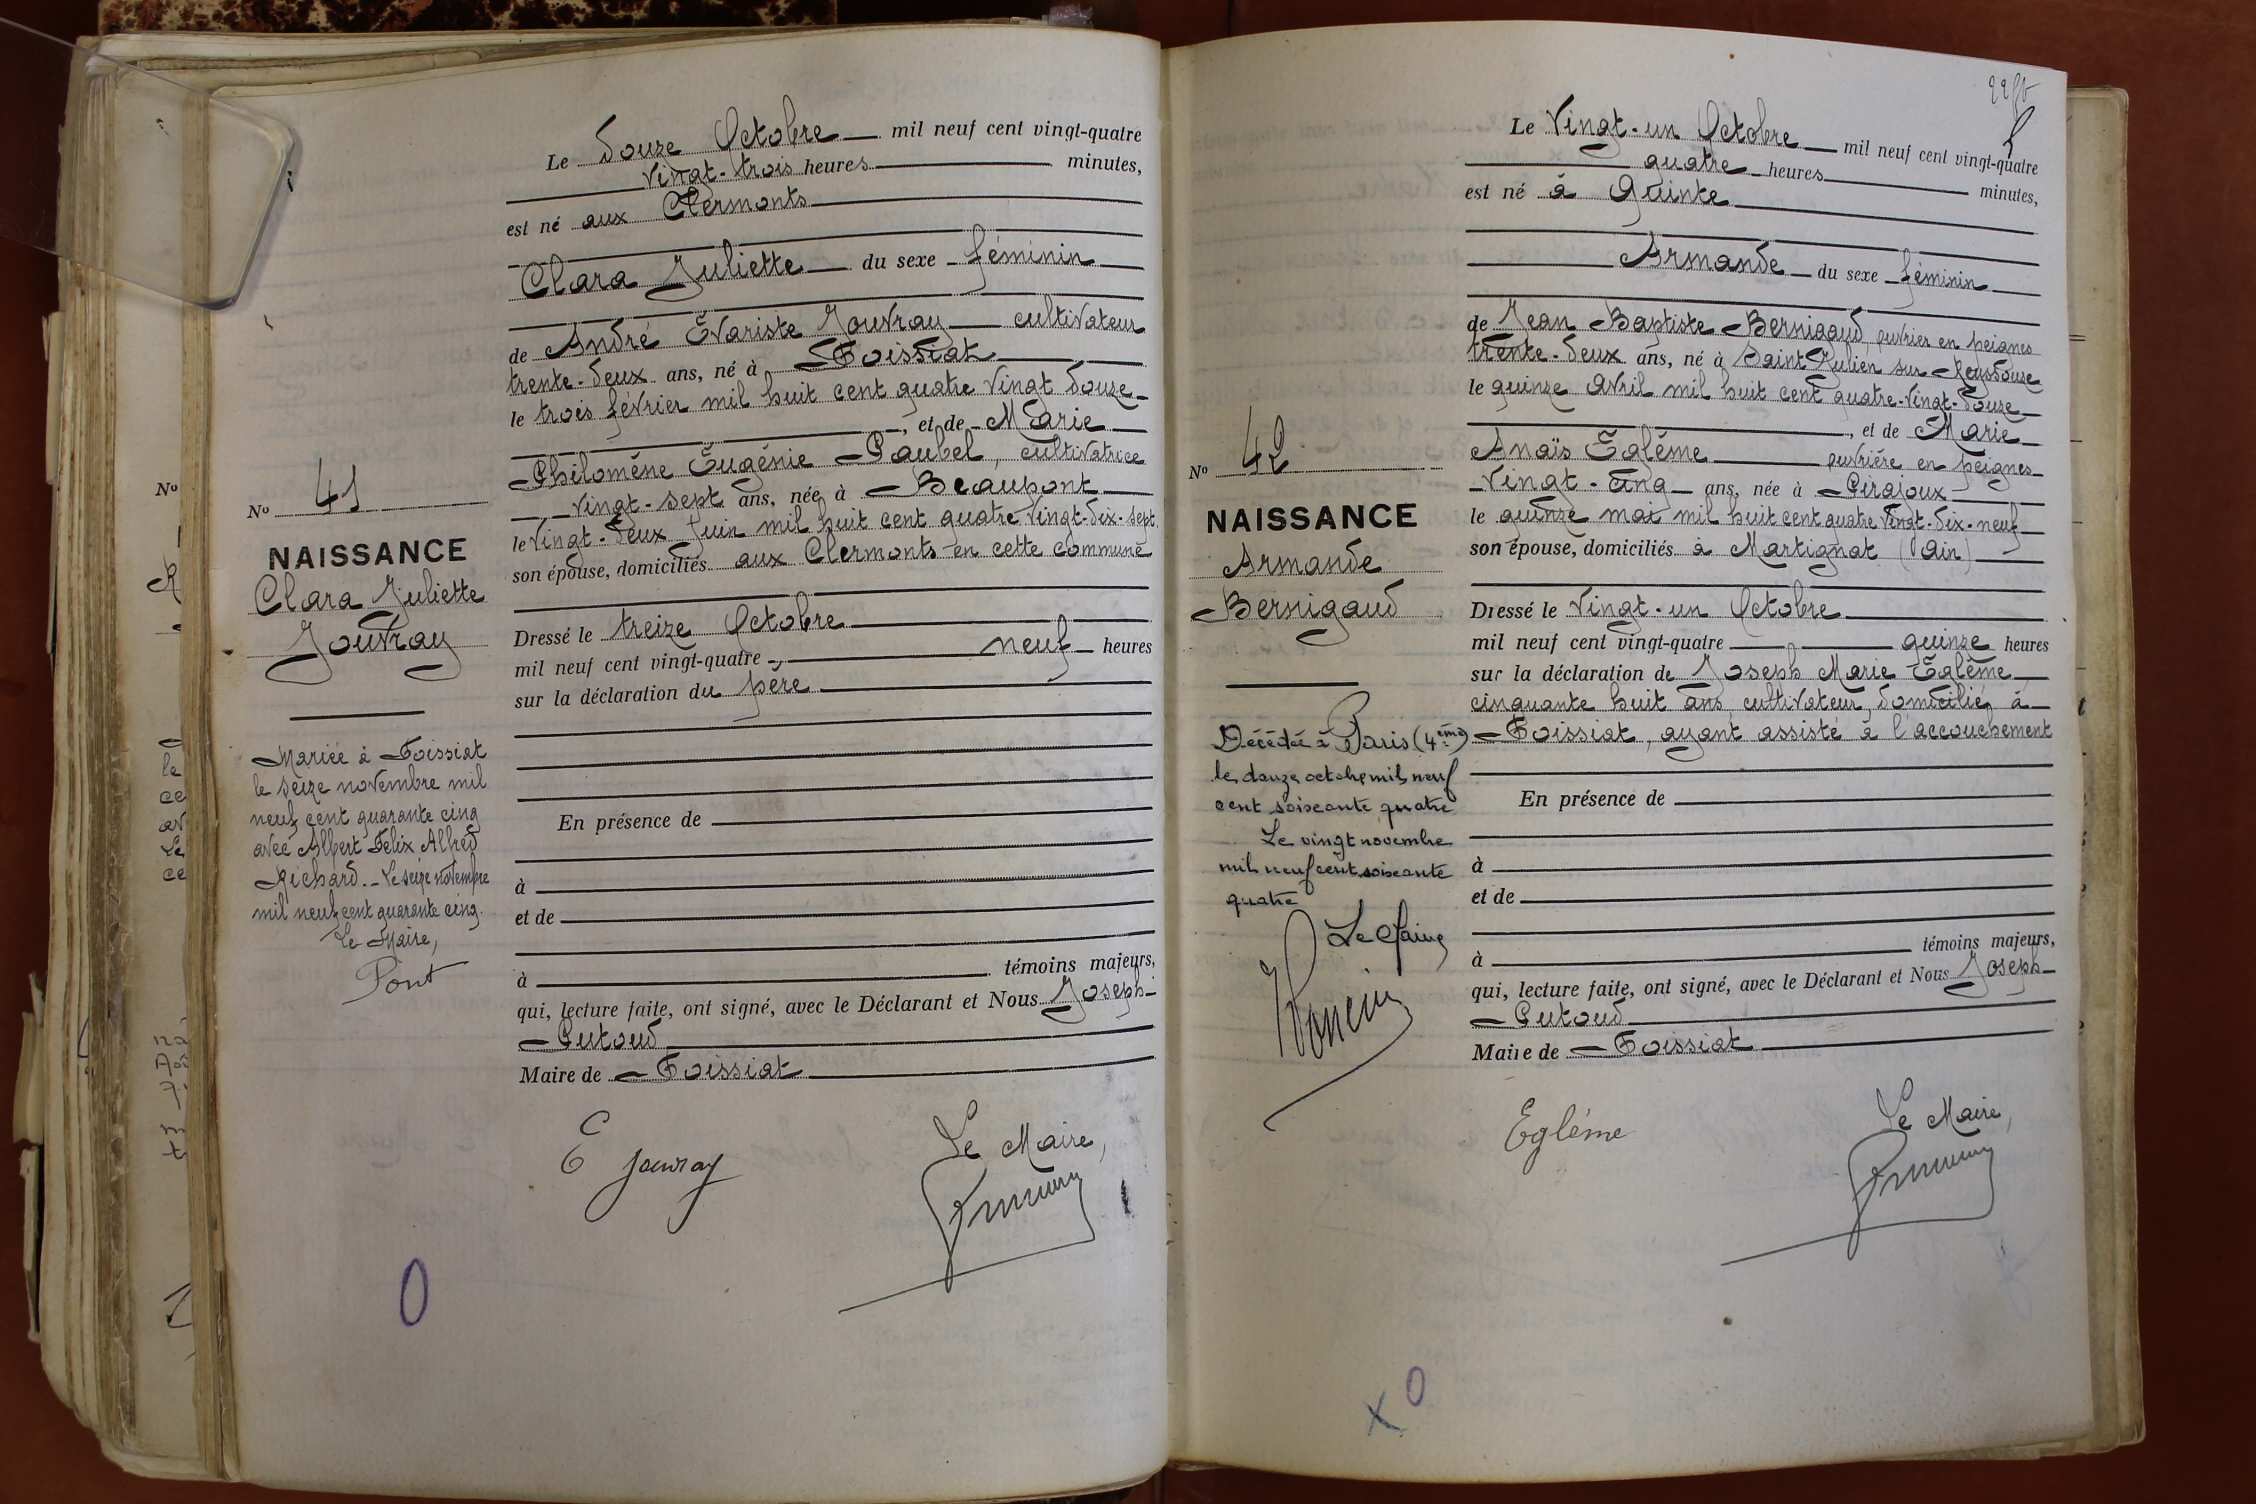 Nº 41
NAISSANCE
Clara Juliette
Jouvray
Mariée à Foissiat
le seize novembre mil
neuf cent quarante cinq
avec Albert Félix Alfred
Richard._ Le seize novembre
mil neuf cent quarante cinq.
Le Maire,
Pont
Le douze Octobre mil neuf cent vingt-quatre
vingt-trois heures minutes,
est né aux Clermonts
Clara Juliette du sexe féminin
de André Evariste Jouvray cultivateur
trente-deux ans, né à Foissiat
le trois février mil huit cent quatre vingt douze
, et de Marie
Philomène Eugénie Paubel, cultivatrice
vingt-sept ans, née à Beaupont
le vingt-deux juin mil huit cent quatre vingt-dix-sept
son épouse, domiciliés aux Clermonts en cette commune
Dressé le treize Octobre
mil neuf cent vingt-quatre, neuf heures
sur la déclaration du père
En présence de
à
et de
à témoins majeurs,
qui, lecture faite, ont signé, avec le Déclarant et Nous Joseph
Putoud
Maire de Foissiat
E Jouvray
Le Maire,
Nº 42
NAISSANCE
Armande
Bernigaud
Décédée à Paris (4ème)
le douze octobre mil neuf
cent soixante quatre
Le vingt novembre
mil neuf cent soixante
quatre
Le Maire
Le Vingt-un Octobre mil neuf cent vingt-quatre
quatre heures minutes,
est né à Quinte
Armande du sexe féminin
de Jean Baptiste Bernigaud ouvrier en peignes
trente-deux ans, né à Saint Julien sur Reyssouze
le quinze avril mil huit cent quatre-vingt-douze
, et de Marie
Anaïs Eglème ouvrière en peignes
Vingt-cinq ans, née à Pirajoux
le quinze mai mil huit cent quatre vingt-dix-neuf
son épouse, domiciliés à Martignat (Ain)
Dressé le vingt-un Octobre
mil neuf cent vingt-quatre quinze heures
sur la déclaration de Joseph Marie Eglème
cinquante huit ans cultivateur, domicilié à
Foissiat, ayant assisté à l'accouchement
En présence de
à
et de
à témoins majeurs,
qui, lecture faite, ont signé, avec le Déclarant et Nous Joseph
Putoud
Maire de Foissiat
Eglème
Le Maire,